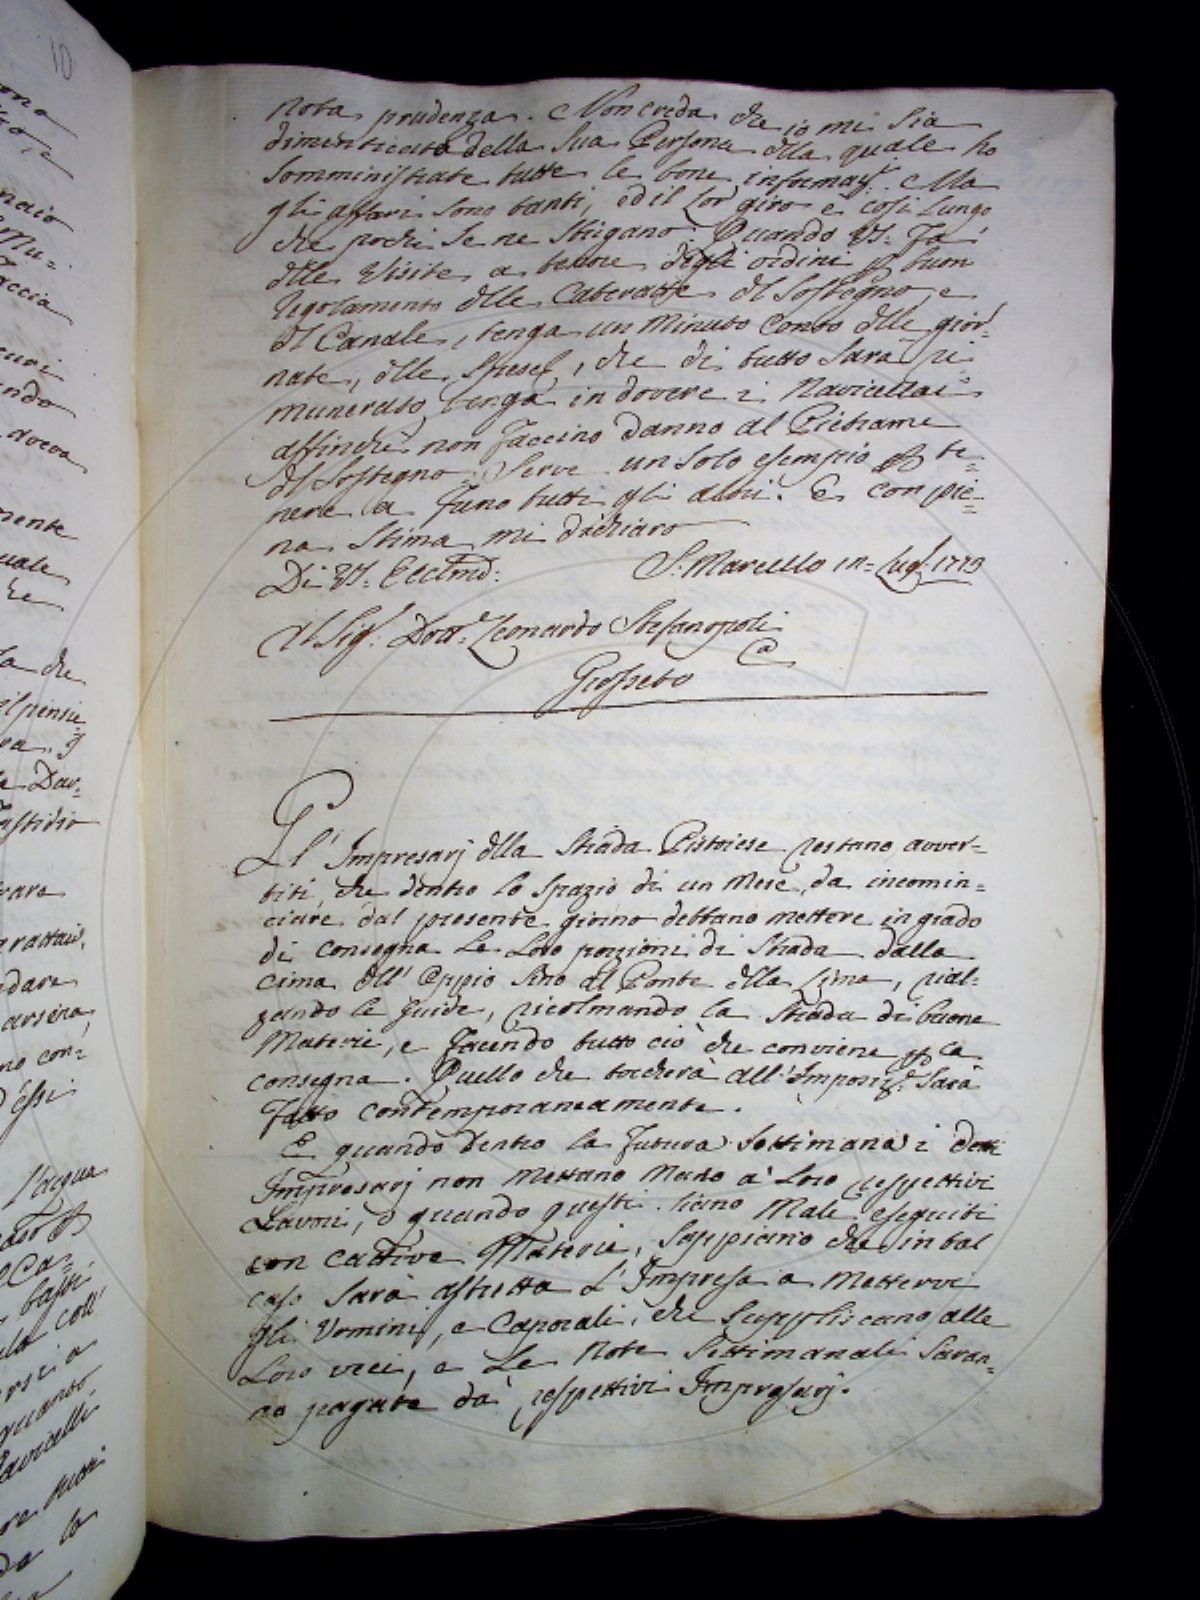 nota prudenza. Non creda che io mi sia
dimenticato della sua Persona dlla quale ho
somministrate tutte le bone informaz.i Ma
gli affari sono tanti, ed il lor giro è così lungo
che pochi se ne strigano. Quando VS. fa
dlle visite a tenore degli ordini p buon
regolamento dlle Cateratte dl Sostegno e
dl Canale, tenga un minuto conto dlle gior-
nate, dlle spese, che di tutto sarà ri
munerato, tenga in dovere i Navicellai
affinchè non faccino danno al Pietrame
dl Sostegno. Serve un solo esempio p te=
nere a freno tutti gli altri. E con pie=
na stima mi dichiaro
Di VS. Ecclma:
S. Marcello in= Lug. 1779
Al Sig. Dott. Leonardo Stefanopoli
Grosseto
Gl' Impresarj dlla Strada Pistoiese restano avver-
titi, che dentro lo spazio di un Mese, da incomin=
ciare dal presente giorno debbano mettere in grado
di consegna le loro porzioni di Strada dalla
cima dll' Oppio sino al Ponte dlla Lima, rial-
zando le guide, ricolmando la Strada di buone
Materie, e facendo tutto ciò che conviene p la
consegna. Quello che toccherà all' Imposiz.e sarà
fatto contemporaneamente.
E quando dentro la futura settimana i detti
Impresarj non mettano mano a' loro respettivi
Lavori, o quando questi siano male eseguiti
con cattive Materie, sappiano che in tal
caso sarà astretta l' Impresa a mettervi
gli Uomini, e Caporali, che suppliscano alle
loro veci, e le note settimanali saran-
no pagate da' respettivi Impresarj.
10